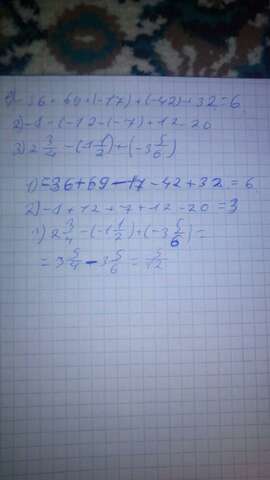 1) -36 + 69 + (-17) + (-42) + 32 = 6
2) -8 - (-12 - (-7) + 12 - 20
3) 2 3/4 - (-1 1/2) + (-3 5/6)
1) = 36 + 69 - 17 - 42 + 32 = 6
2) -8 + 12 + 7 + 12 - 20 = 3
3) 2 3/4 - (-1 1/2) + (-3 5/6) =
= 3 5/4 - 3 5/6 = 5/12